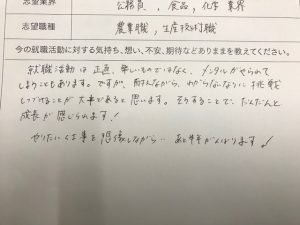 志望業界 公務員, 食品, 化学 業界
志望職種 農業職, 生産技術職
今の就職活動に対する気持ち、想い、不安、期待などありままを教えてください。
就職活動は正直、楽しいものではなく、メンタルがやられて
しまうこともあります。ですが、耐えながら、わからないなりに挑戦
しつづけることが大事であると思います。そうすることで、だんだんと
成長が感じられます！
やりたい仕事を想像しながら… あと半年がんばります！